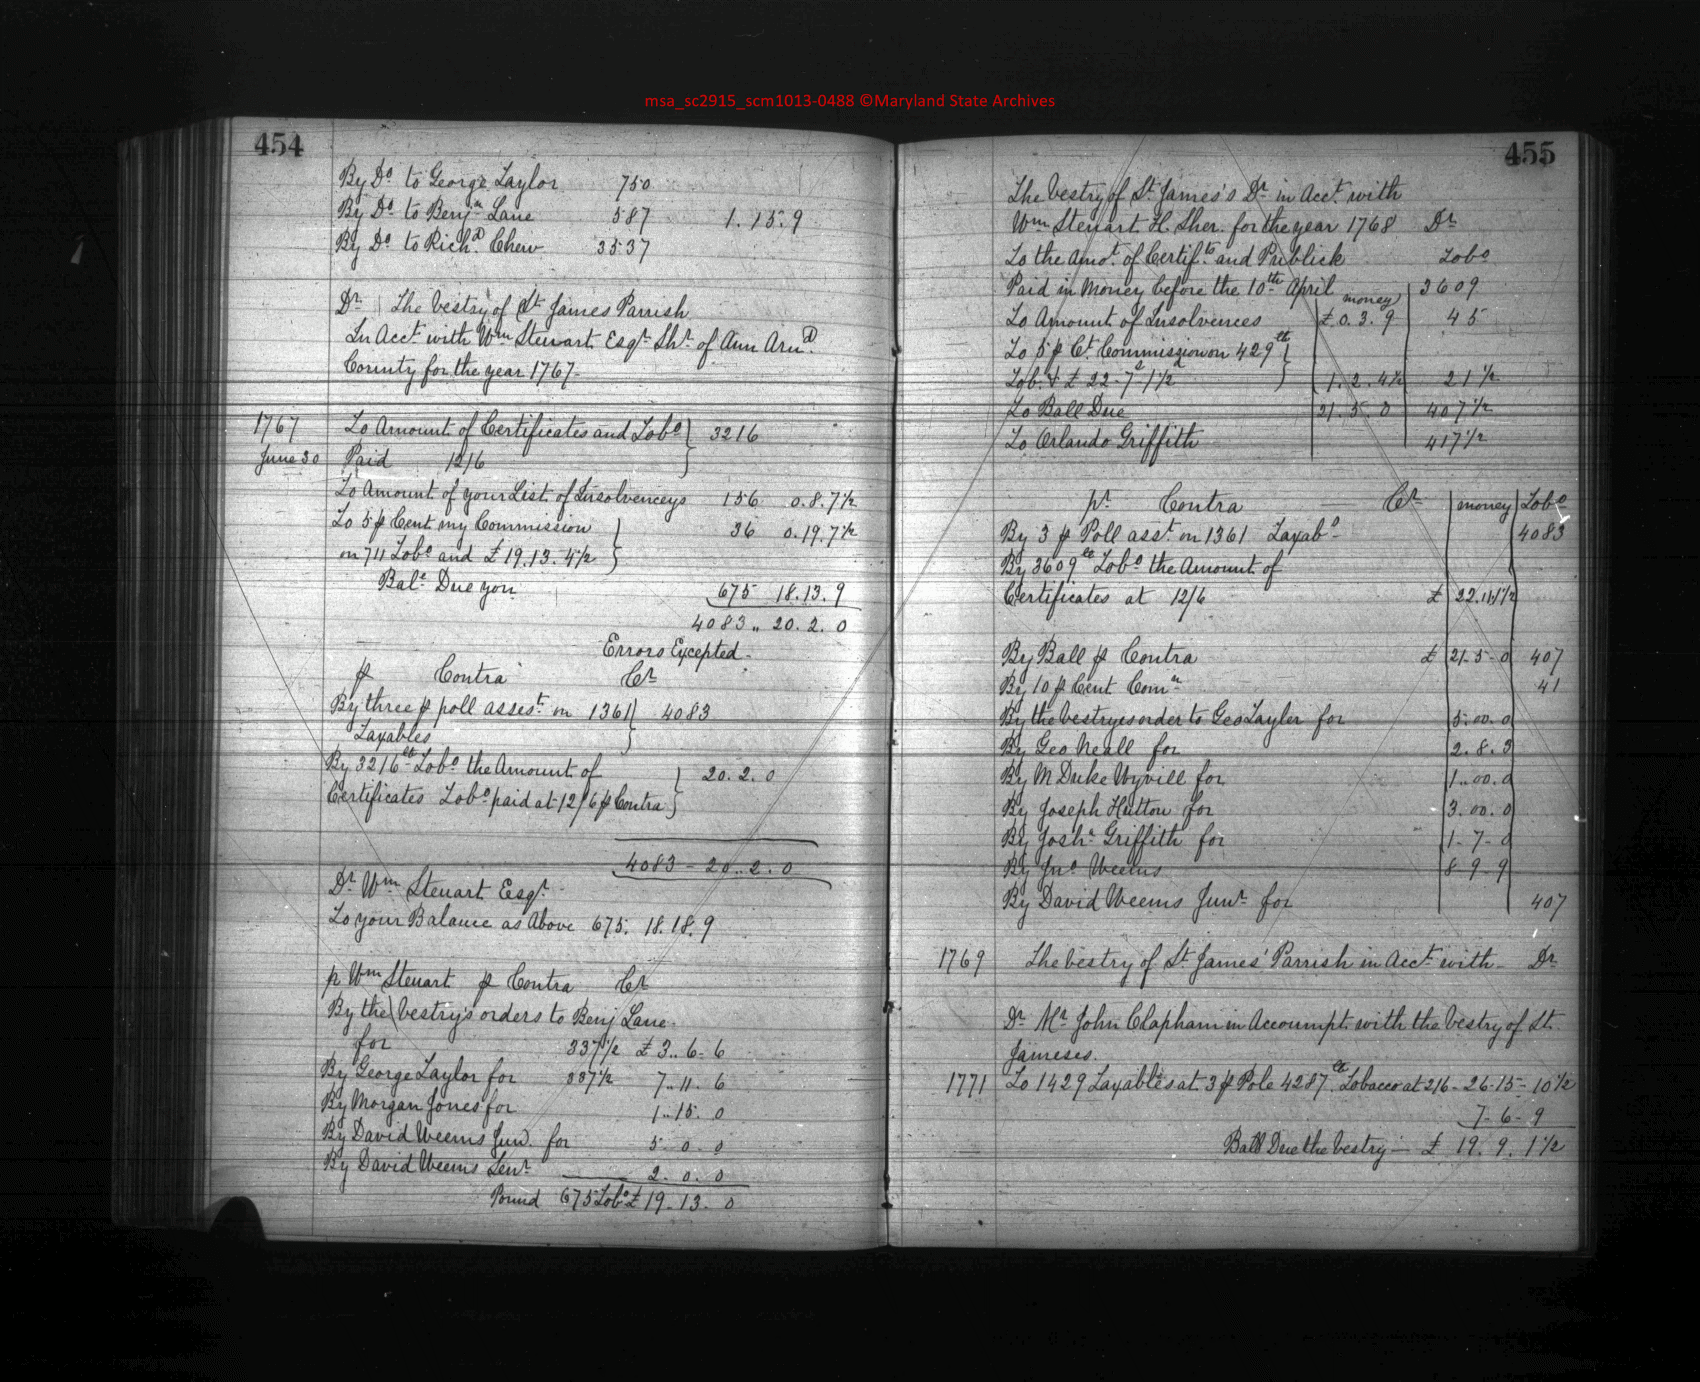 msa_sc2915_scm1013-0488 ©Maryland State Archives
454
By Do to George Taylor 750
By Do to Benjn Lane 587 1.15.9
By Do to Richd Chew 3537
Dr The Vestry of St James Parrish
In Acct with Wm Steuart Esqr Shr of Ann Arnd
County for the year 1767-
1767 To Amount of Certificates and Tobo } 3216
June 30 Paid 12/6
To Amount of your List of Insolvenceys 156 0.8.7½
To 5 p Cent my Commission } 36 0.19.7½
on 711 Tobo and £19.13.4½
Bale Due you 675 18.13.9
4083.. 20.2.0
Errors Excepted-
p Contra Cr
By three p poll assest on 1361 } 4083
Taxables
By 3216 lb Tobo the Amount of } 20.2.0
Certificates Tobo paid at 12/6 p Contra
4083 - 20..2.0
Dr Wm Steuart Esqr
To your Balance as Above 675. 18.18.9
p Wm Steuart p Contra Cr
By the Vestry's orders to Benj Lane
for 337½ £3..6-6
By George Taylor for 337½ 7..11.6
By Morgan Jones for 1..15.0
By David Weems Jun. for 5.0.0
By David Weems Senr 2.0.0
Pound 675 Tobo £19-13.0
455
The Vestry of St James's Dr in Acct with
Wm Steuart H. Sher. for the year 1768 Dr
To the Amot of Certifts and Publick Tobo
Paid in Money before the 10th April money 3609
To Amount of Insolvences £.0.3.9 45
To 5 p Ct Commission on 429 lb }
Tob. & £22-7s 1½d 1.2.4½ 21½
To Ball Due 21.5.0 407½
To Orlando Griffith 417½
pr Contra Cr money Tobo
By 3 p Poll asst on 1361 Taxabs 4083
By 3609 lb Tobo the Amount of
Certificates at 12/6 £ 22.11.1½
By Ball p Contra £ 21-5-0 407
By 10 p Cent Comn 41
By the Vestryes order to Geo Tayler for 5.00.0
By Geo Neall for 2.8.3
By M Duke Wyvill for 1..00.0
By Joseph Hutton for 3.00.0
By Joshr Griffith for 1-7-0
By Jno Weems 8-9-9
By David Weems Junr for 407
1769 The Vestry of St James' Parrish in Acct with- Dr
Dr Mr John Clapham in Accoumpt with the Vestry of St.
Jameses.
1771 To 1429 Taxables at 3 p Pole 4287 lb Tobacco at 2/6- 26-15-10½
7-6-9
Ball Due the Vestry- £ 19.9.1½